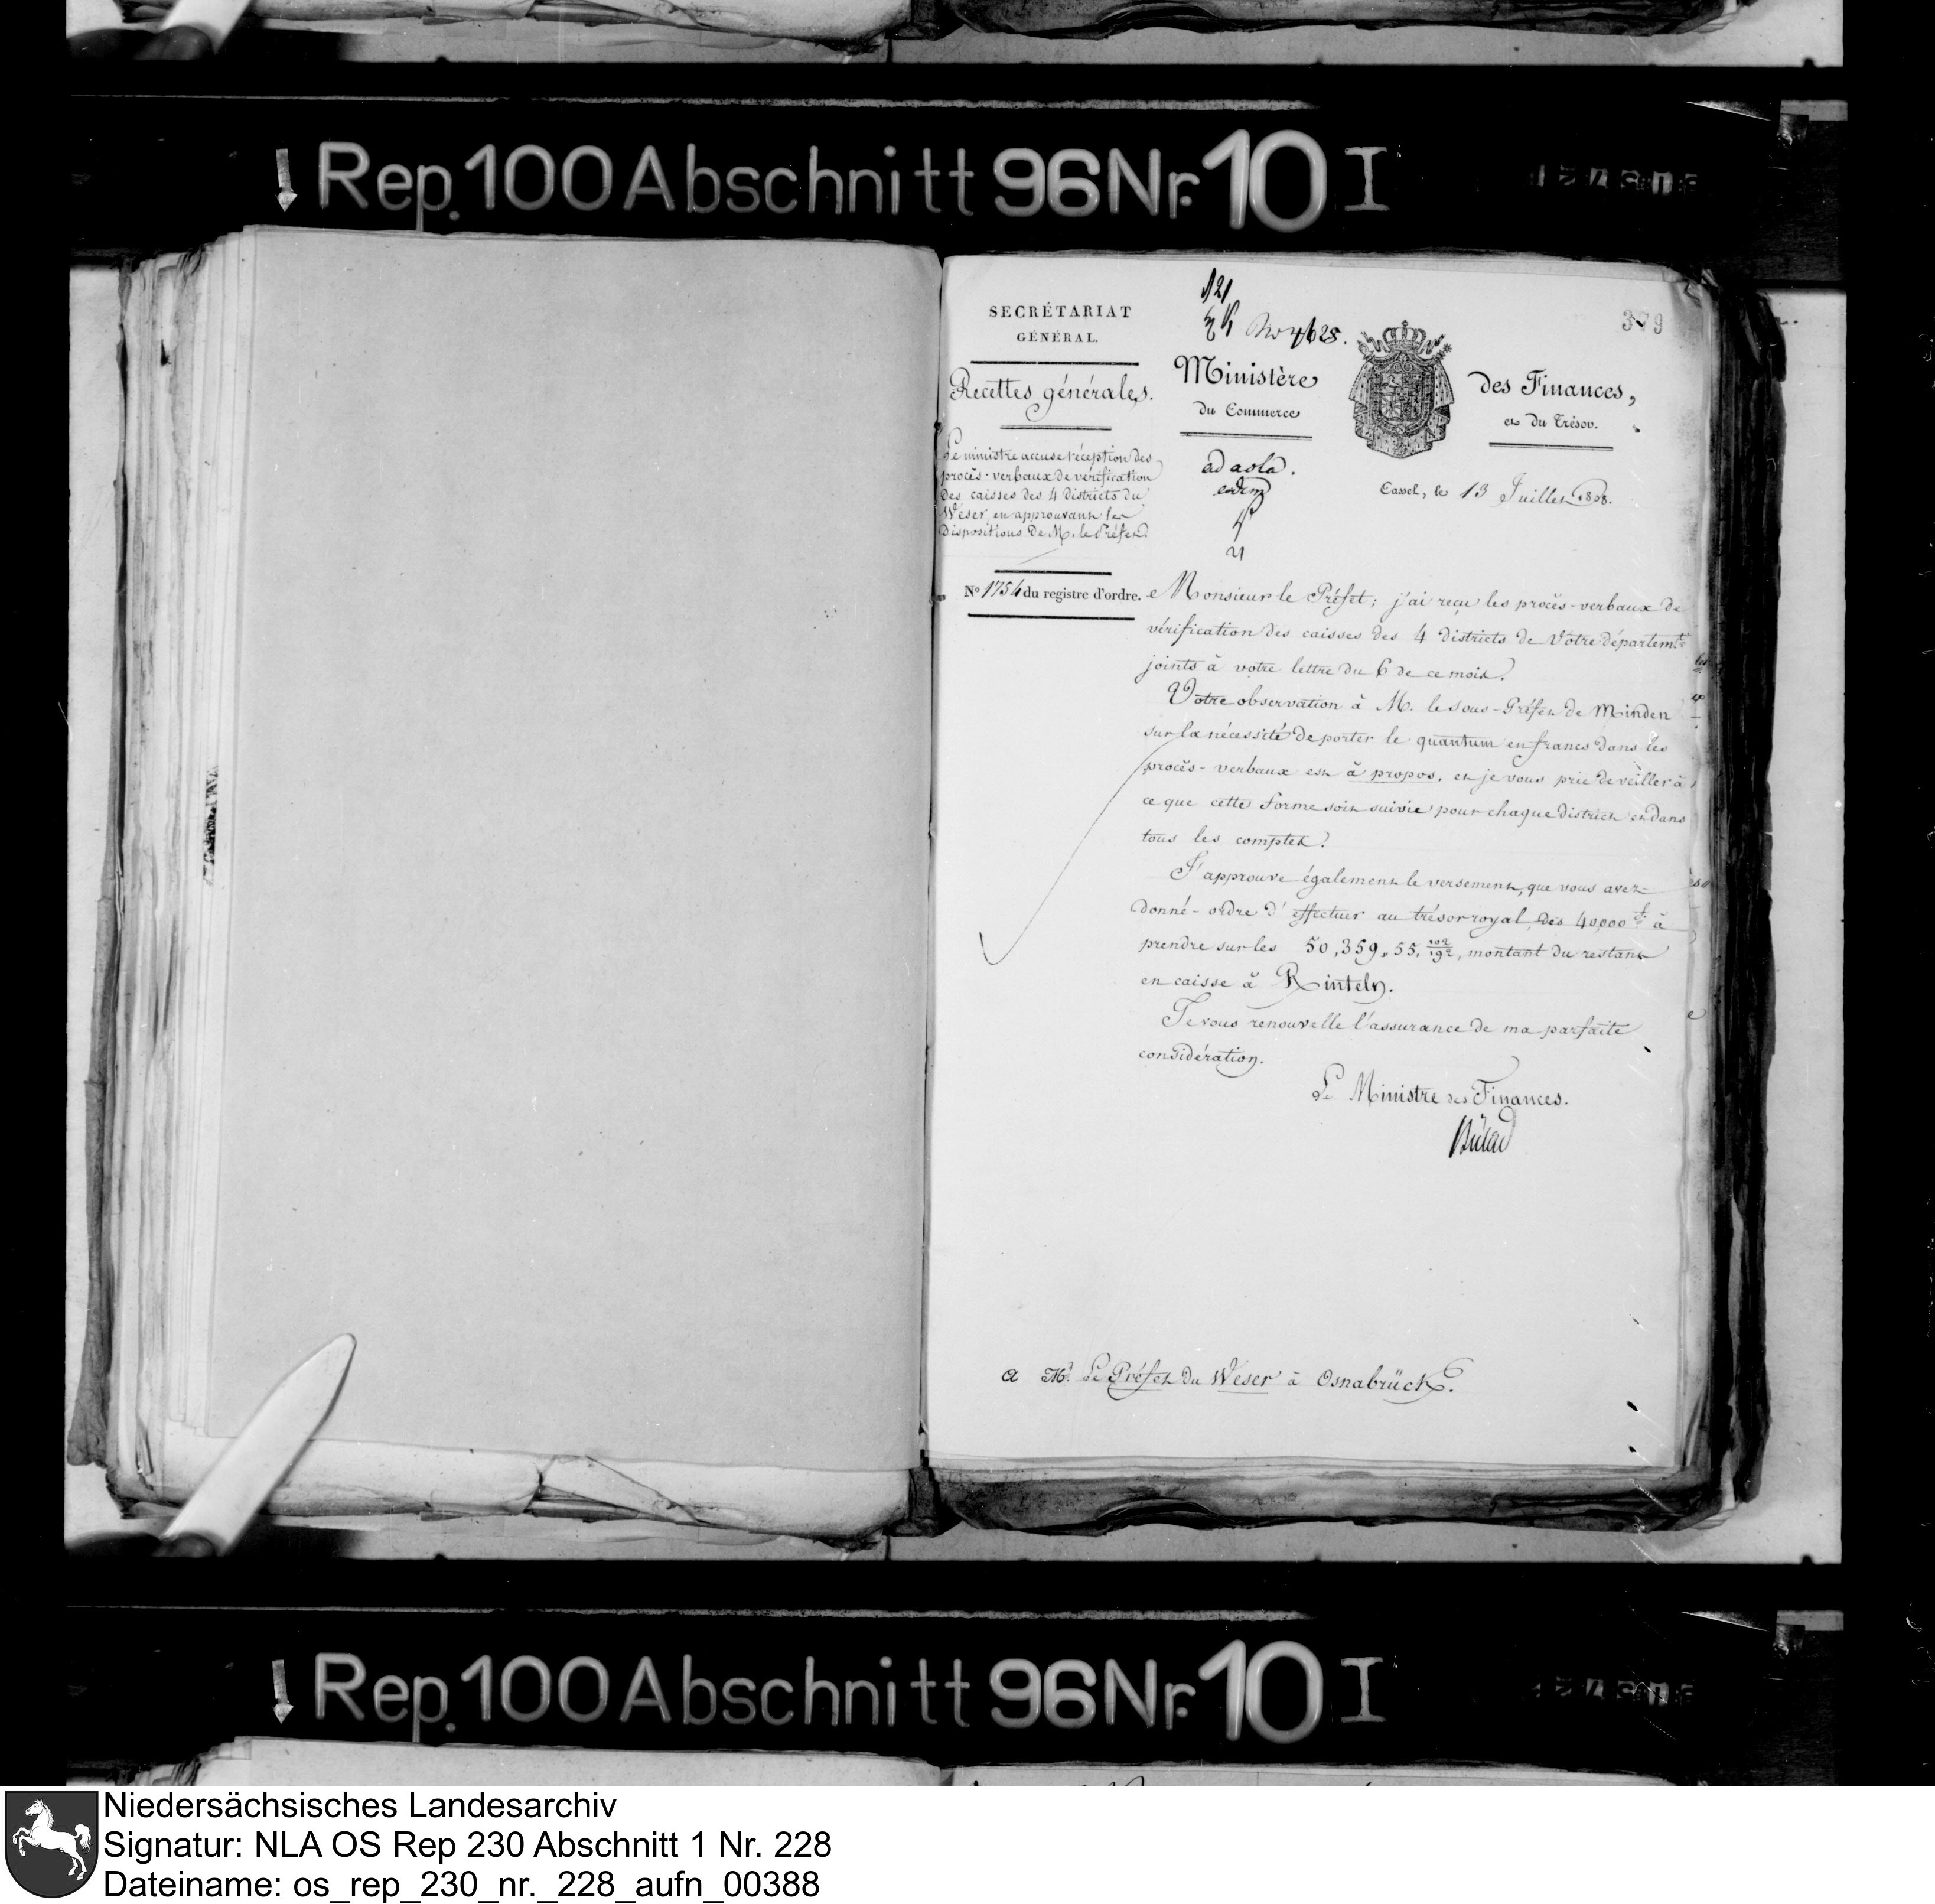 Rep. 100 Abschnitt 96 Nr. 10 I
379
SECRÉTARIAT
GÉNÉRAL.
Recettes générales.
Le ministre accuse réception des
procès-verbaux de vérification
des caisses des 4 districts du
Weser, en approuvant les
dispositions de M. le Préfet.
No 1754 du registre d'ordre.
No 4628.
Ministère des Finances,
du Commerce et du Trésor.
ad acta.
Cassel, le 13 Juillet 1808.
Monsieur le Préfet; j'ai reçu les procès-verbaux de
vérification des caisses des 4 districts de votre départemt.
joints à votre lettre du 6 de ce mois.
Votre observation à M. le sous-Préfet de Minden
sur la nécessité de porter le quantum en francs dans les
procès-verbaux est à propos, et je vous prie de veiller à
ce que cette forme soit suivie pour chaque district et dans
tous les comptes.
J'approuve également le versement, que vous avez
donné-ordre d'effectuer au trésor royal, des 40,000 f. à
prendre sur les 50,359.55. 102/192, montant du restant
en caisse à Rinteln.
Je vous renouvelle l'assurance de ma parfaite
considération.
Le Ministre des Finances.
a Mr. Le Préfet du Weser à Osnabrück.
Rep. 100 Abschnitt 96 Nr. 10 I
Niedersächsisches Landesarchiv
Signatur: NLA OS Rep 230 Abschnitt 1 Nr. 228
Dateiname: os_rep_230_nr._228_aufn_00388